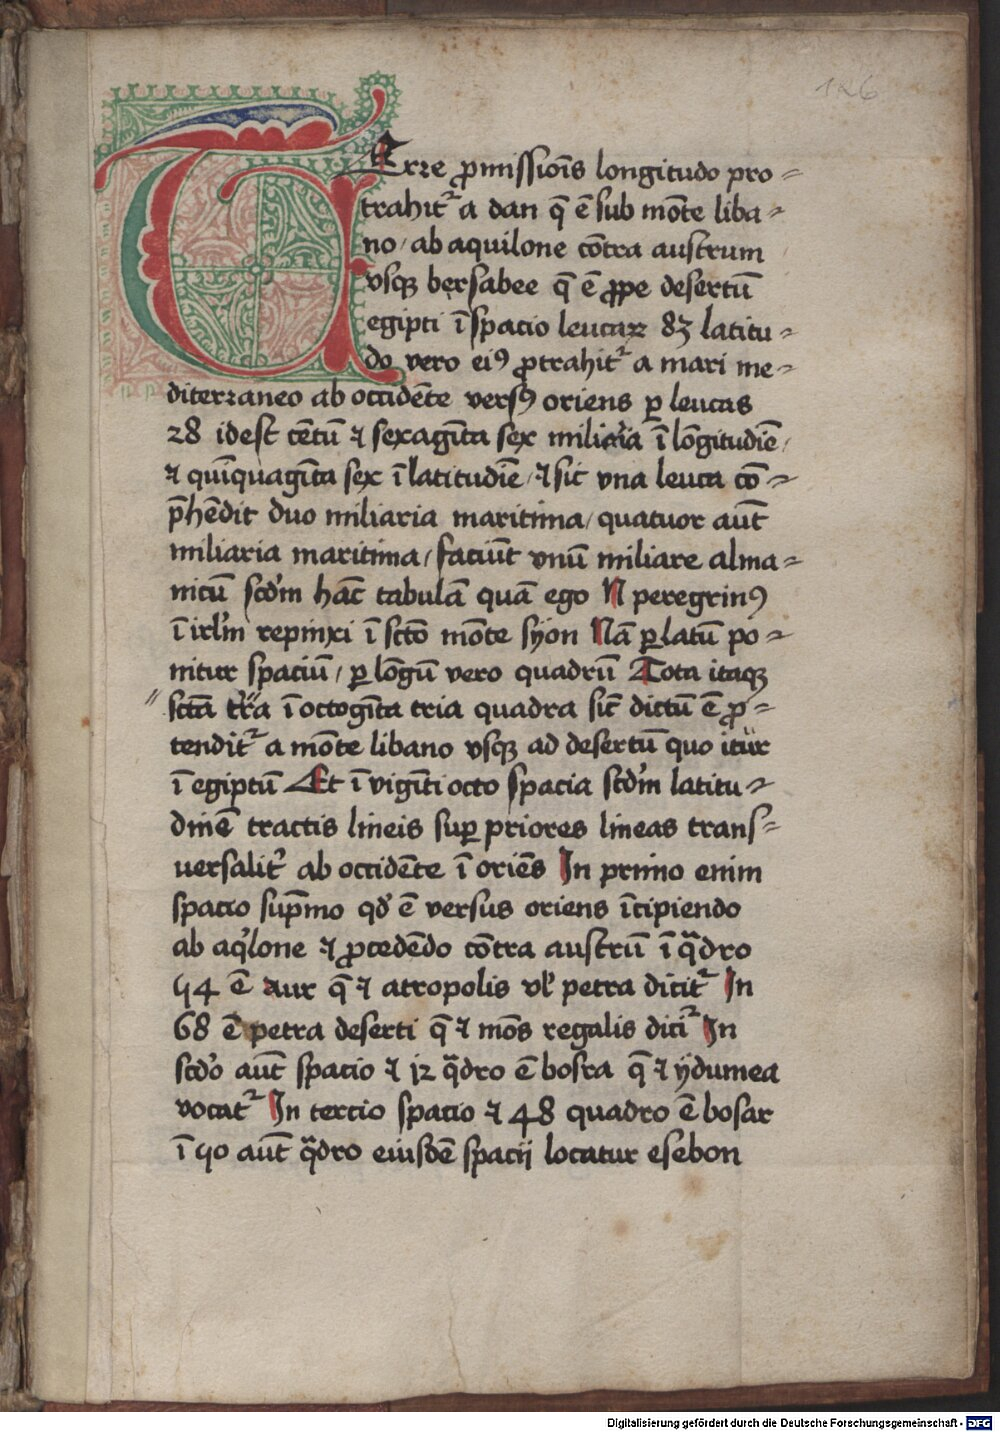 126
TErre ꝓmissiōis longitudo pro⸗
trahit᷑ a dan q̄ ē sub mōte liba⸗
no / ab aquilone cōtra austrum
vsqꝫ bersabee q̄ ē ꝓpe desertū
egipti ī spacio leucaꝝ 83 latitu⸗
do vero eiꝰ ꝓtrahit᷑ a mari me⸗
diterraneo ab occidēte versꝰ oriens ꝑ leucas
28 idest cētū ⁊ sexagīta sex miliaria ī lōgitudīe /
⁊ quīquagīta sex ī latitudīe / ⁊ sic vna leuca cō⸗
p̄hēdit duo miliaria maritima / quatuor aūt
miliaria maritima / faciūt vnū miliare alma⸗
nicū scd̓m hāc tabulā quā ego N peregrinꝰ
ī irl̓m repinxi ī sctō mōte syon Nā ꝑ latū po⸗
nitur spaciū / ꝑ lōgū vero quadrū Tota itaqꝫ
sctā tr̄a ī octogīta tria quadra sic̄ dictū ē ꝓ⸗
tendit᷑ a mōte libano vsqꝫ ad desertū quo itur
ī egiptū Et ī vigīti octo spacia scd̓m latitu⸗
dinē tractis lineis suꝑ priores lineas trans⸗
uersalit̓ ab occidēte ī oriēs In primo enim
spacio sup̄mo qd̓ ē versus oriens īcipiendo
ab aq̓lone ⁊ ꝓcedēdo cōtra austrū ī q̄dro
54 ē aur q̄ ⁊ atropolis vl̓ petra dicit᷑ In
68 ē petra deserti q̄ ⁊ mōs regalis dici᷑ In
scd̓o aūt spacio ⁊ 12 q̄dro ē bosra q̄ ⁊ ydumea
vocat᷑ In tercio spacio ⁊ 48 quadro ē bosar
ī 50 aūt q̄dro eiusdē spacij locatur esebon
Digitalisierung gefördert durch die Deutsche Forschungsgemeinschaft - DFG